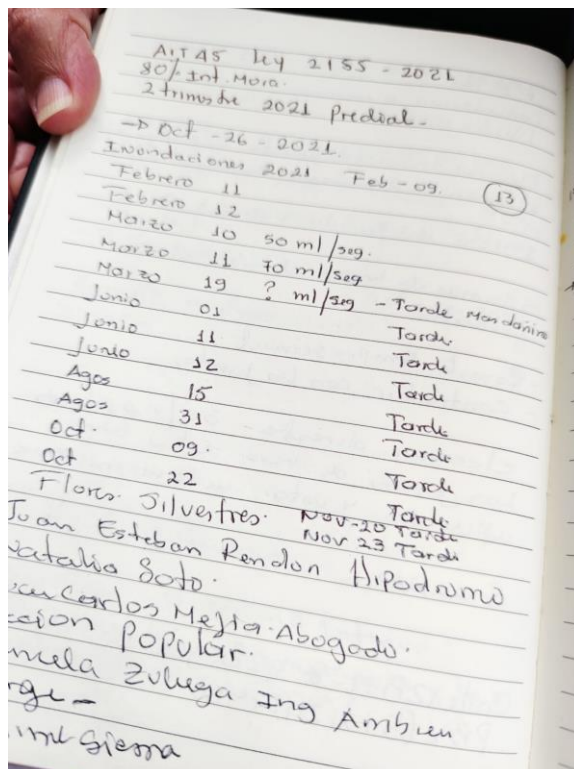 AITAS Ley 2155 - 2021
80% Int. Mora.
2 trimestre 2021 Predial -
→ Oct - 26 - 2021.
Inondaciones 2021 Feb - 09. 13
Febrero 11
Febrero 12
Marzo 10 50 ml/seg.
Marzo 11 70 ml/seg
Marzo 19 ? ml/seg - Tarde Mas dañina
Junio 01 Tarde
Junio 11 Tarde
Junio 12 Tarde
Agos 15 Tarde
Agos 31 Tarde
Oct. 09. Tarde
Oct 22 Tarde
Flores Silvestres. Nov-20 Tarde
Nov 23 Tarde
Juan Esteban Rendon Hipodromo
Natalia Soto.
Carlos Mejia. Abogado.
ccion Popular.
Zuluaga Ing Ambien
rge -
Sierra